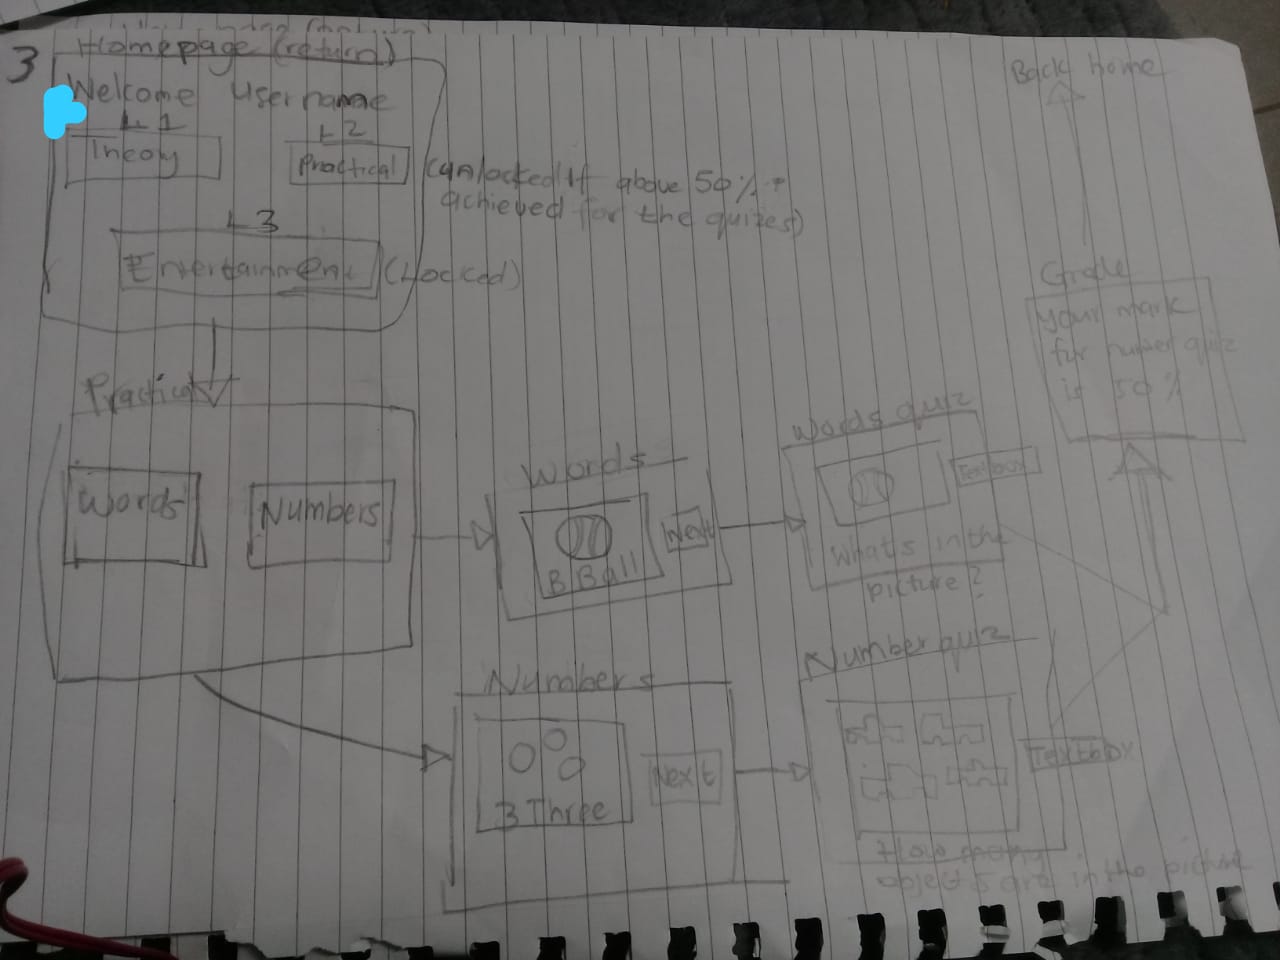 3
Homepage (return)
Welcome Username
L1
L2
Theory
Practical
(unlocked if above 50%
achieved for the quizes)
L3
Entertainment
(Locked)
Practical
Words
Numbers
Words
B Ball
Next
Words quiz
Textbox
What's in the
picture?
Numbers
3 Three
Next
Number quiz
Textbox
How many
objects are in the picture
Grade
Your mark
for number quiz
is 50%
Back home